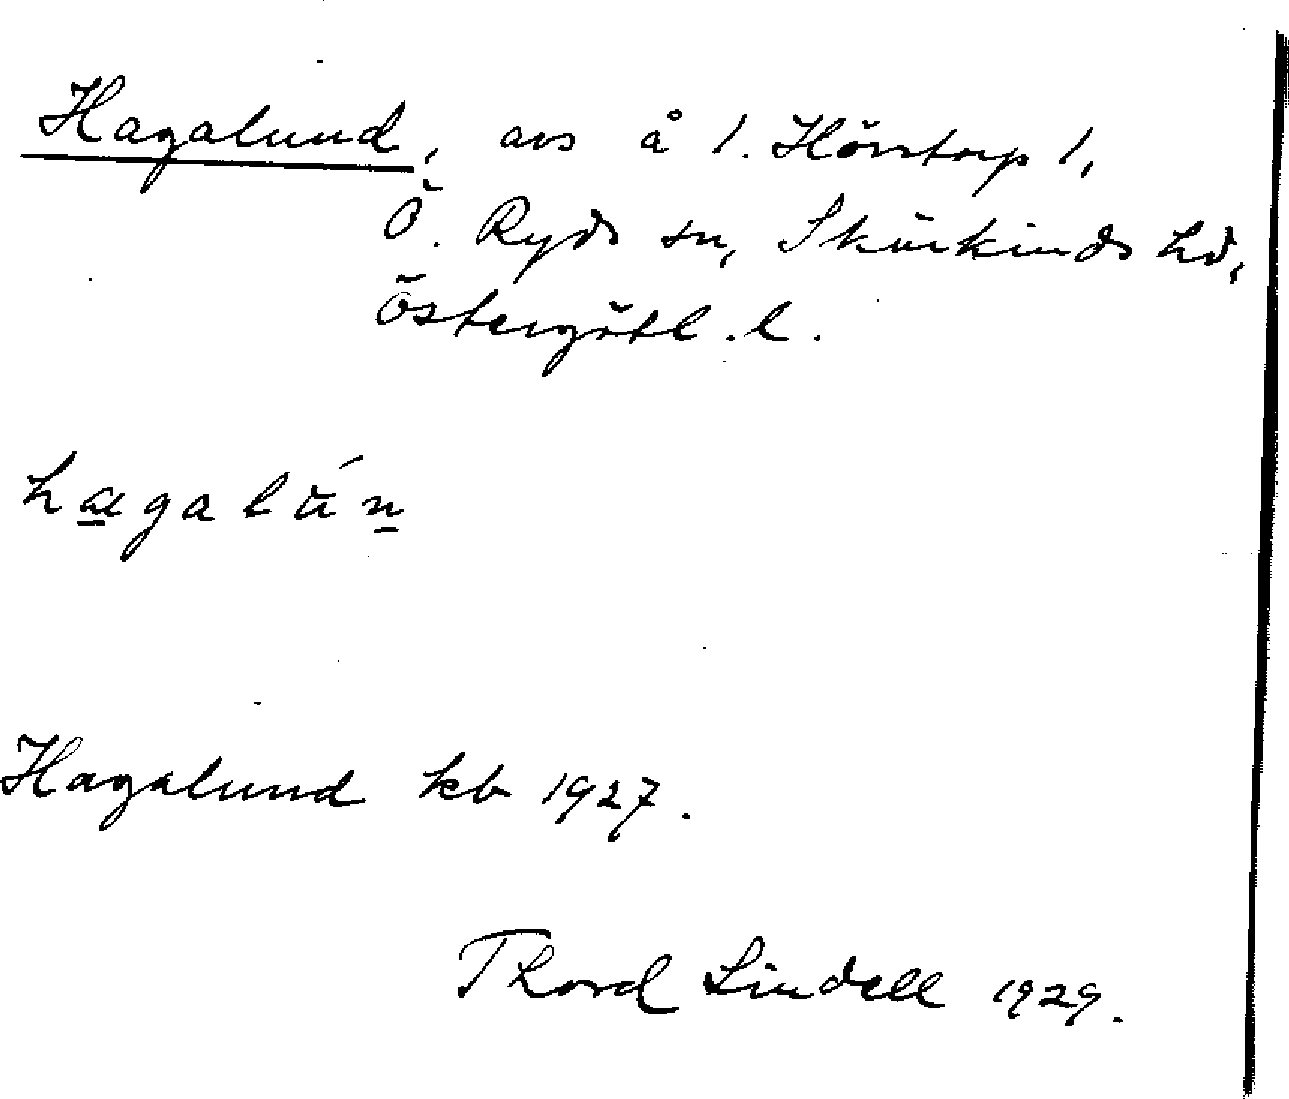 Hagalund, avs å 1. Hövstorp 1,
Ö. Ryds sn, Skärkinds hd,
Östergötl. l.
hagalún
Hagalund kb 1927.
Thord Lindell 1929.